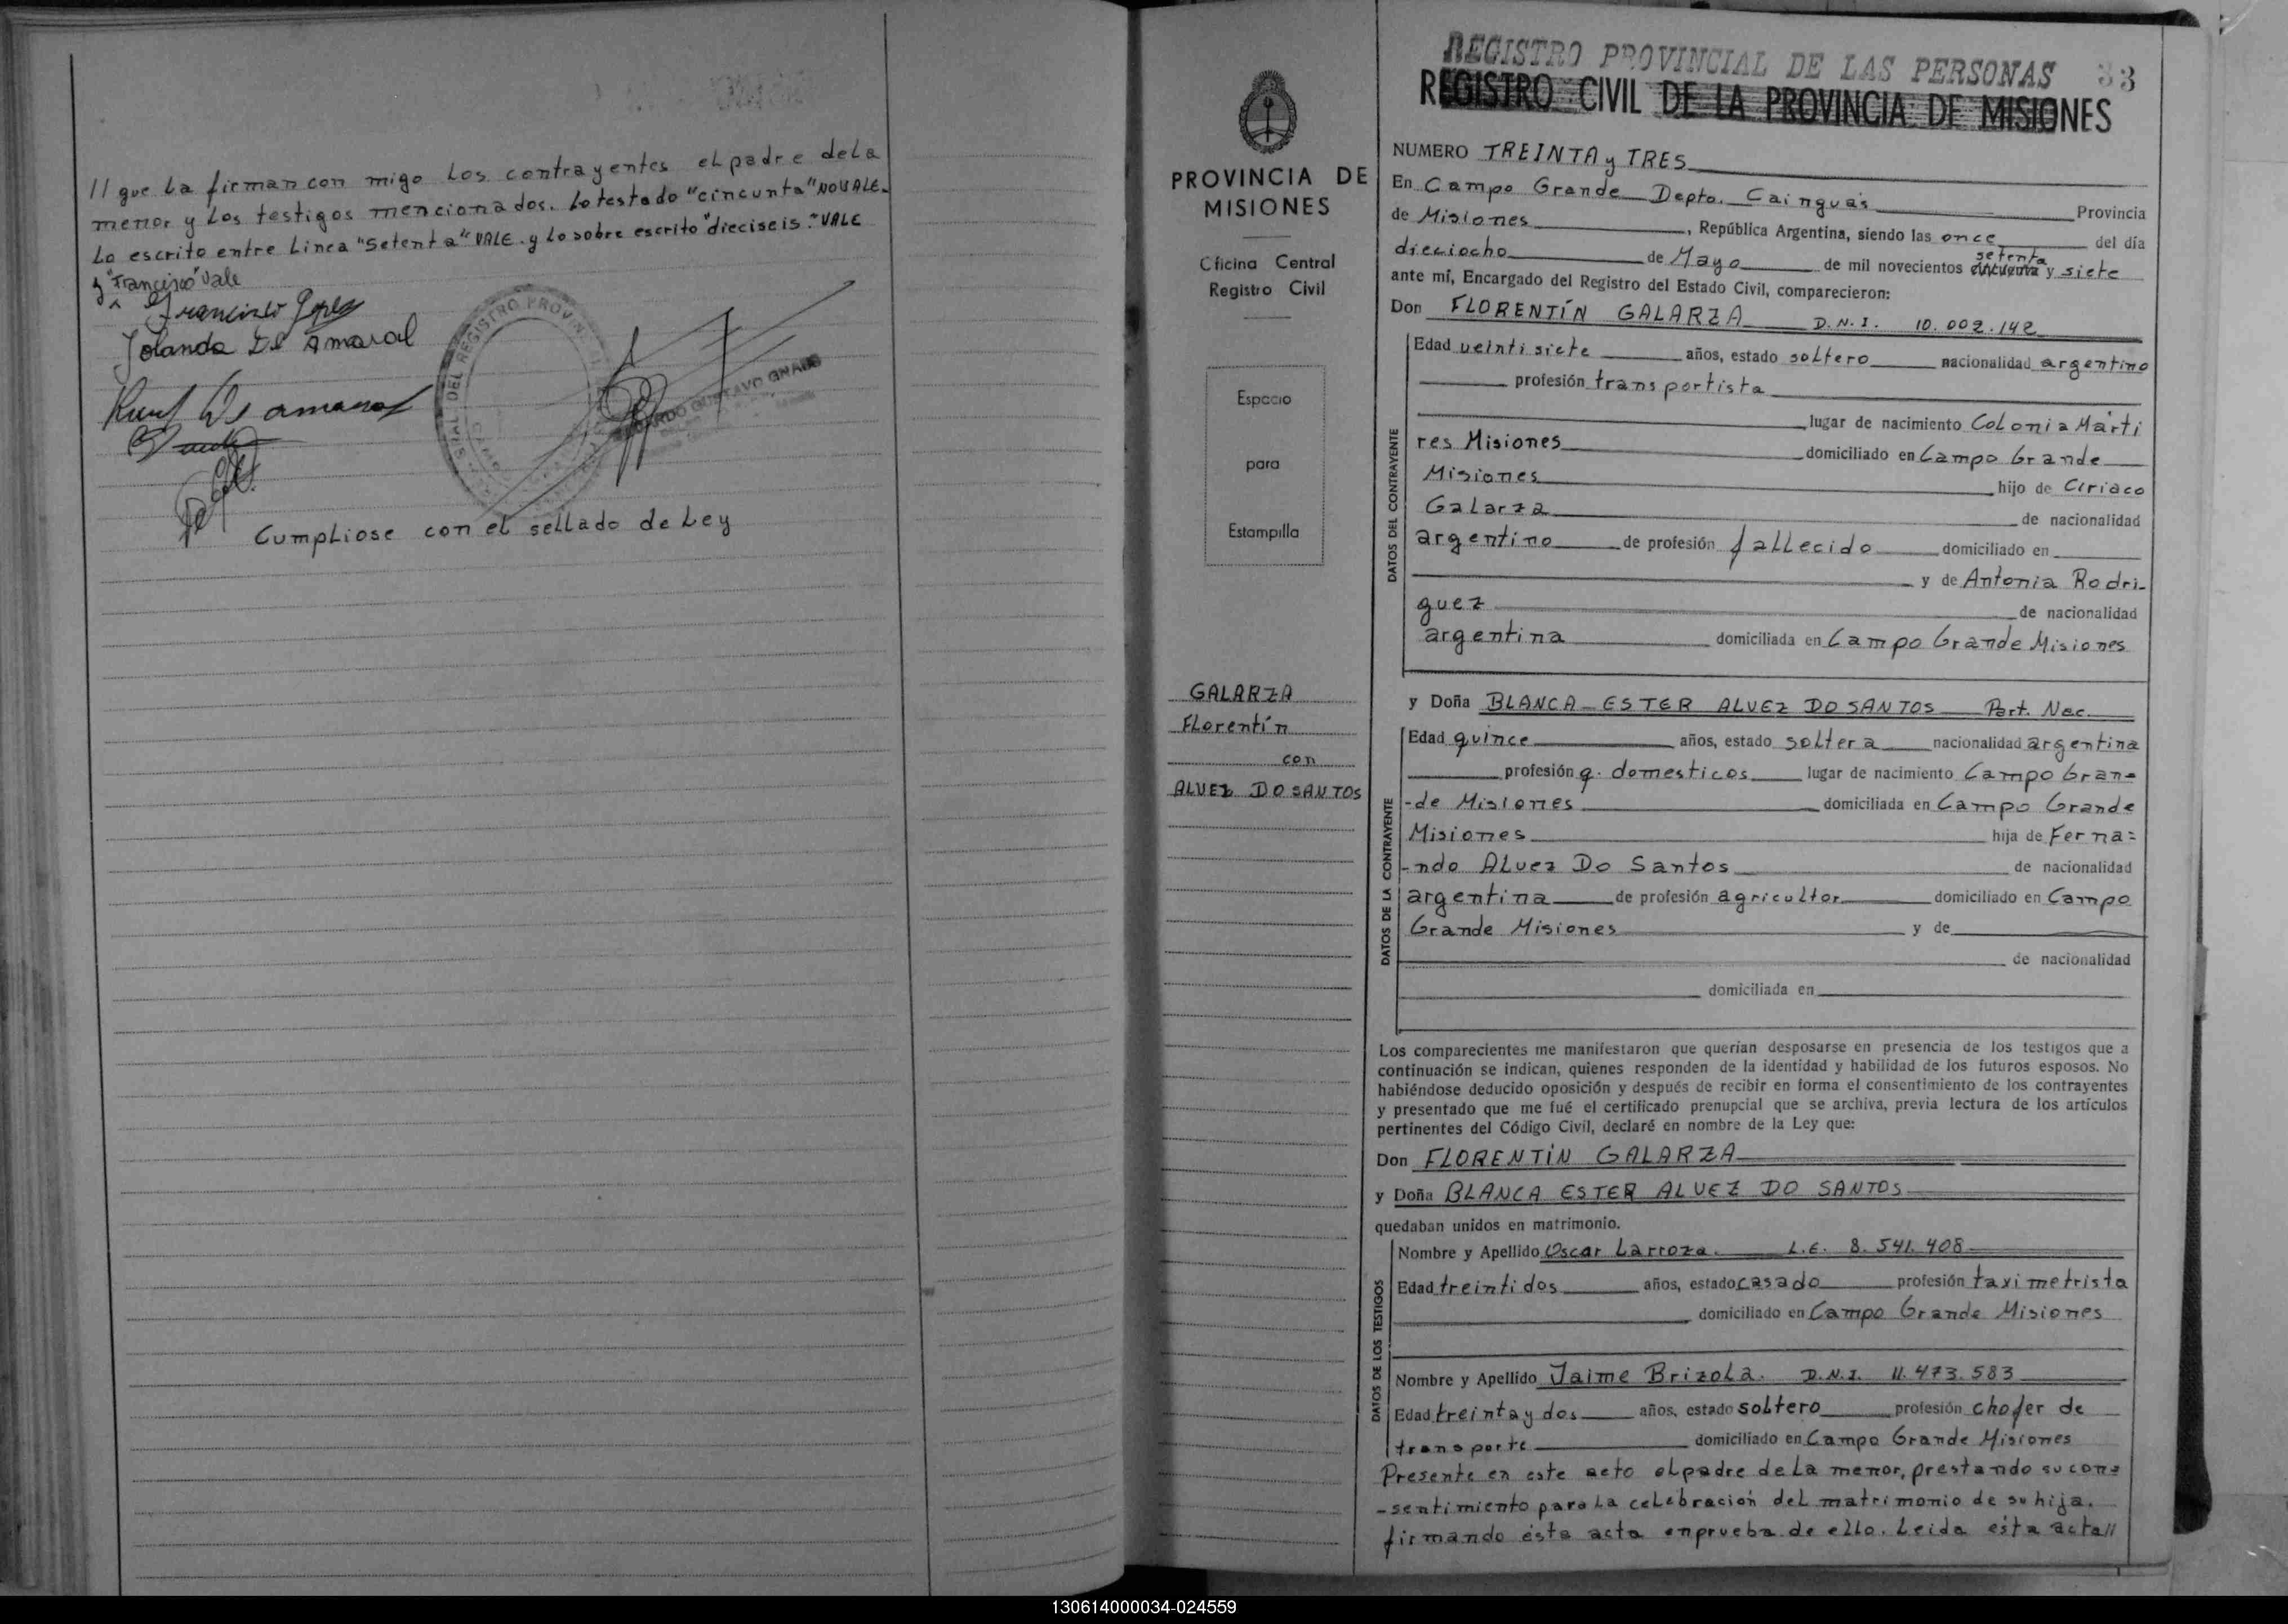 // que la firman con migo los contrayentes el padre de la
menor y los testigos mencionados. Lo testado "cincunta" NO VALE.
Lo escrito entre Linea "Setenta" VALE. y lo sobre escrito "dieciseis." VALE
y "Francisco" Vale
Francisco
Yolanda De Amaral
De amaral
Cumpliose con el sellado de Ley
REGISTRO PROVINCIAL DE LAS PERSONAS 33
REGISTRO CIVIL DE LA PROVINCIA DE MISIONES
PROVINCIA DE
MISIONES
Oficina Central
Registro Civil
Espacio
para
Estampilla
GALARZA
Florentín
con
ALVEZ DO SANTOS
NUMERO TREINTA y TRES
En Campo Grande Depto. Cainguás Provincia
de Misiones, República Argentina, siendo las once del día
dieciocho de Mayo de mil novecientos cincuenta setenta y siete
ante mí, Encargado del Registro del Estado Civil, comparecieron:
Don FLORENTÍN GALARZA D.N.I. 10.002.142
DATOS DEL CONTRAYENTE
Edad veintisiete años, estado soltero nacionalidad argentino
profesión transportista
lugar de nacimiento Colonia Márti
res Misiones domiciliado en Campo Grande
Misiones hijo de Ciriaco
Galarza de nacionalidad
argentino de profesión fallecido domiciliado en
y de Antonia Rodri-
guez de nacionalidad
argentina domiciliada en Campo Grande Misiones
y Doña BLANCA ESTER ALVEZ DO SANTOS Part. Nac.
DATOS DE LA CONTRAYENTE
Edad quince años, estado soltera nacionalidad argentina
profesión q. domesticos lugar de nacimiento Campo Gran=
-de Misiones domiciliada en Campo Grande
Misiones hija de Ferna=
-ndo Alvez Do Santos de nacionalidad
argentina de profesión agricultor domiciliado en Campo
Grande Misiones y de
de nacionalidad
domiciliada en
Los comparecientes me manifestaron que querían desposarse en presencia de los testigos que a
continuación se indican, quienes responden de la identidad y habilidad de los futuros esposos. No
habiéndose deducido oposición y después de recibir en forma el consentimiento de los contrayentes
y presentado que me fué el certificado prenupcial que se archiva, previa lectura de los artículos
pertinentes del Código Civil, declaré en nombre de la Ley que:
Don FLORENTÍN GALARZA
y Doña BLANCA ESTER ALVEZ DO SANTOS
quedaban unidos en matrimonio.
DATOS DE LOS TESTIGOS
Nombre y Apellido Oscar Larroza. L.E. 8.541.408
Edad treintidos años, estado casado profesión taximetrista
domiciliado en Campo Grande Misiones
Nombre y Apellido Jaime Brizola. D.N.I. 11.473.583
Edad treinta y dos años, estado soltero profesión chofer de
transporte domiciliado en Campo Grande Misiones
Presente en este acto el padre de la menor, prestando su con=
-sentimiento para la celebración del matrimonio de su hija.
firmando ésta acta en prueba de ello. Leida ésta acta//
130614000034-024559